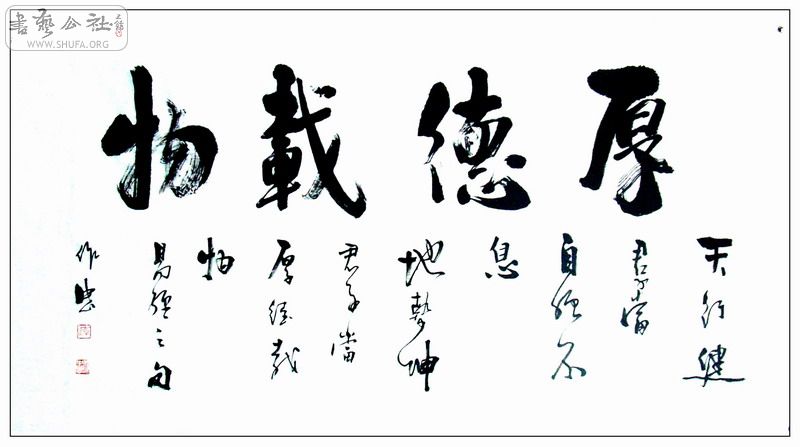 書藝公社
WWW.SHUFA.ORG
厚德載物
天行健
君子當
自強不
息
地勢坤
君子當
厚德載
物
易經之句